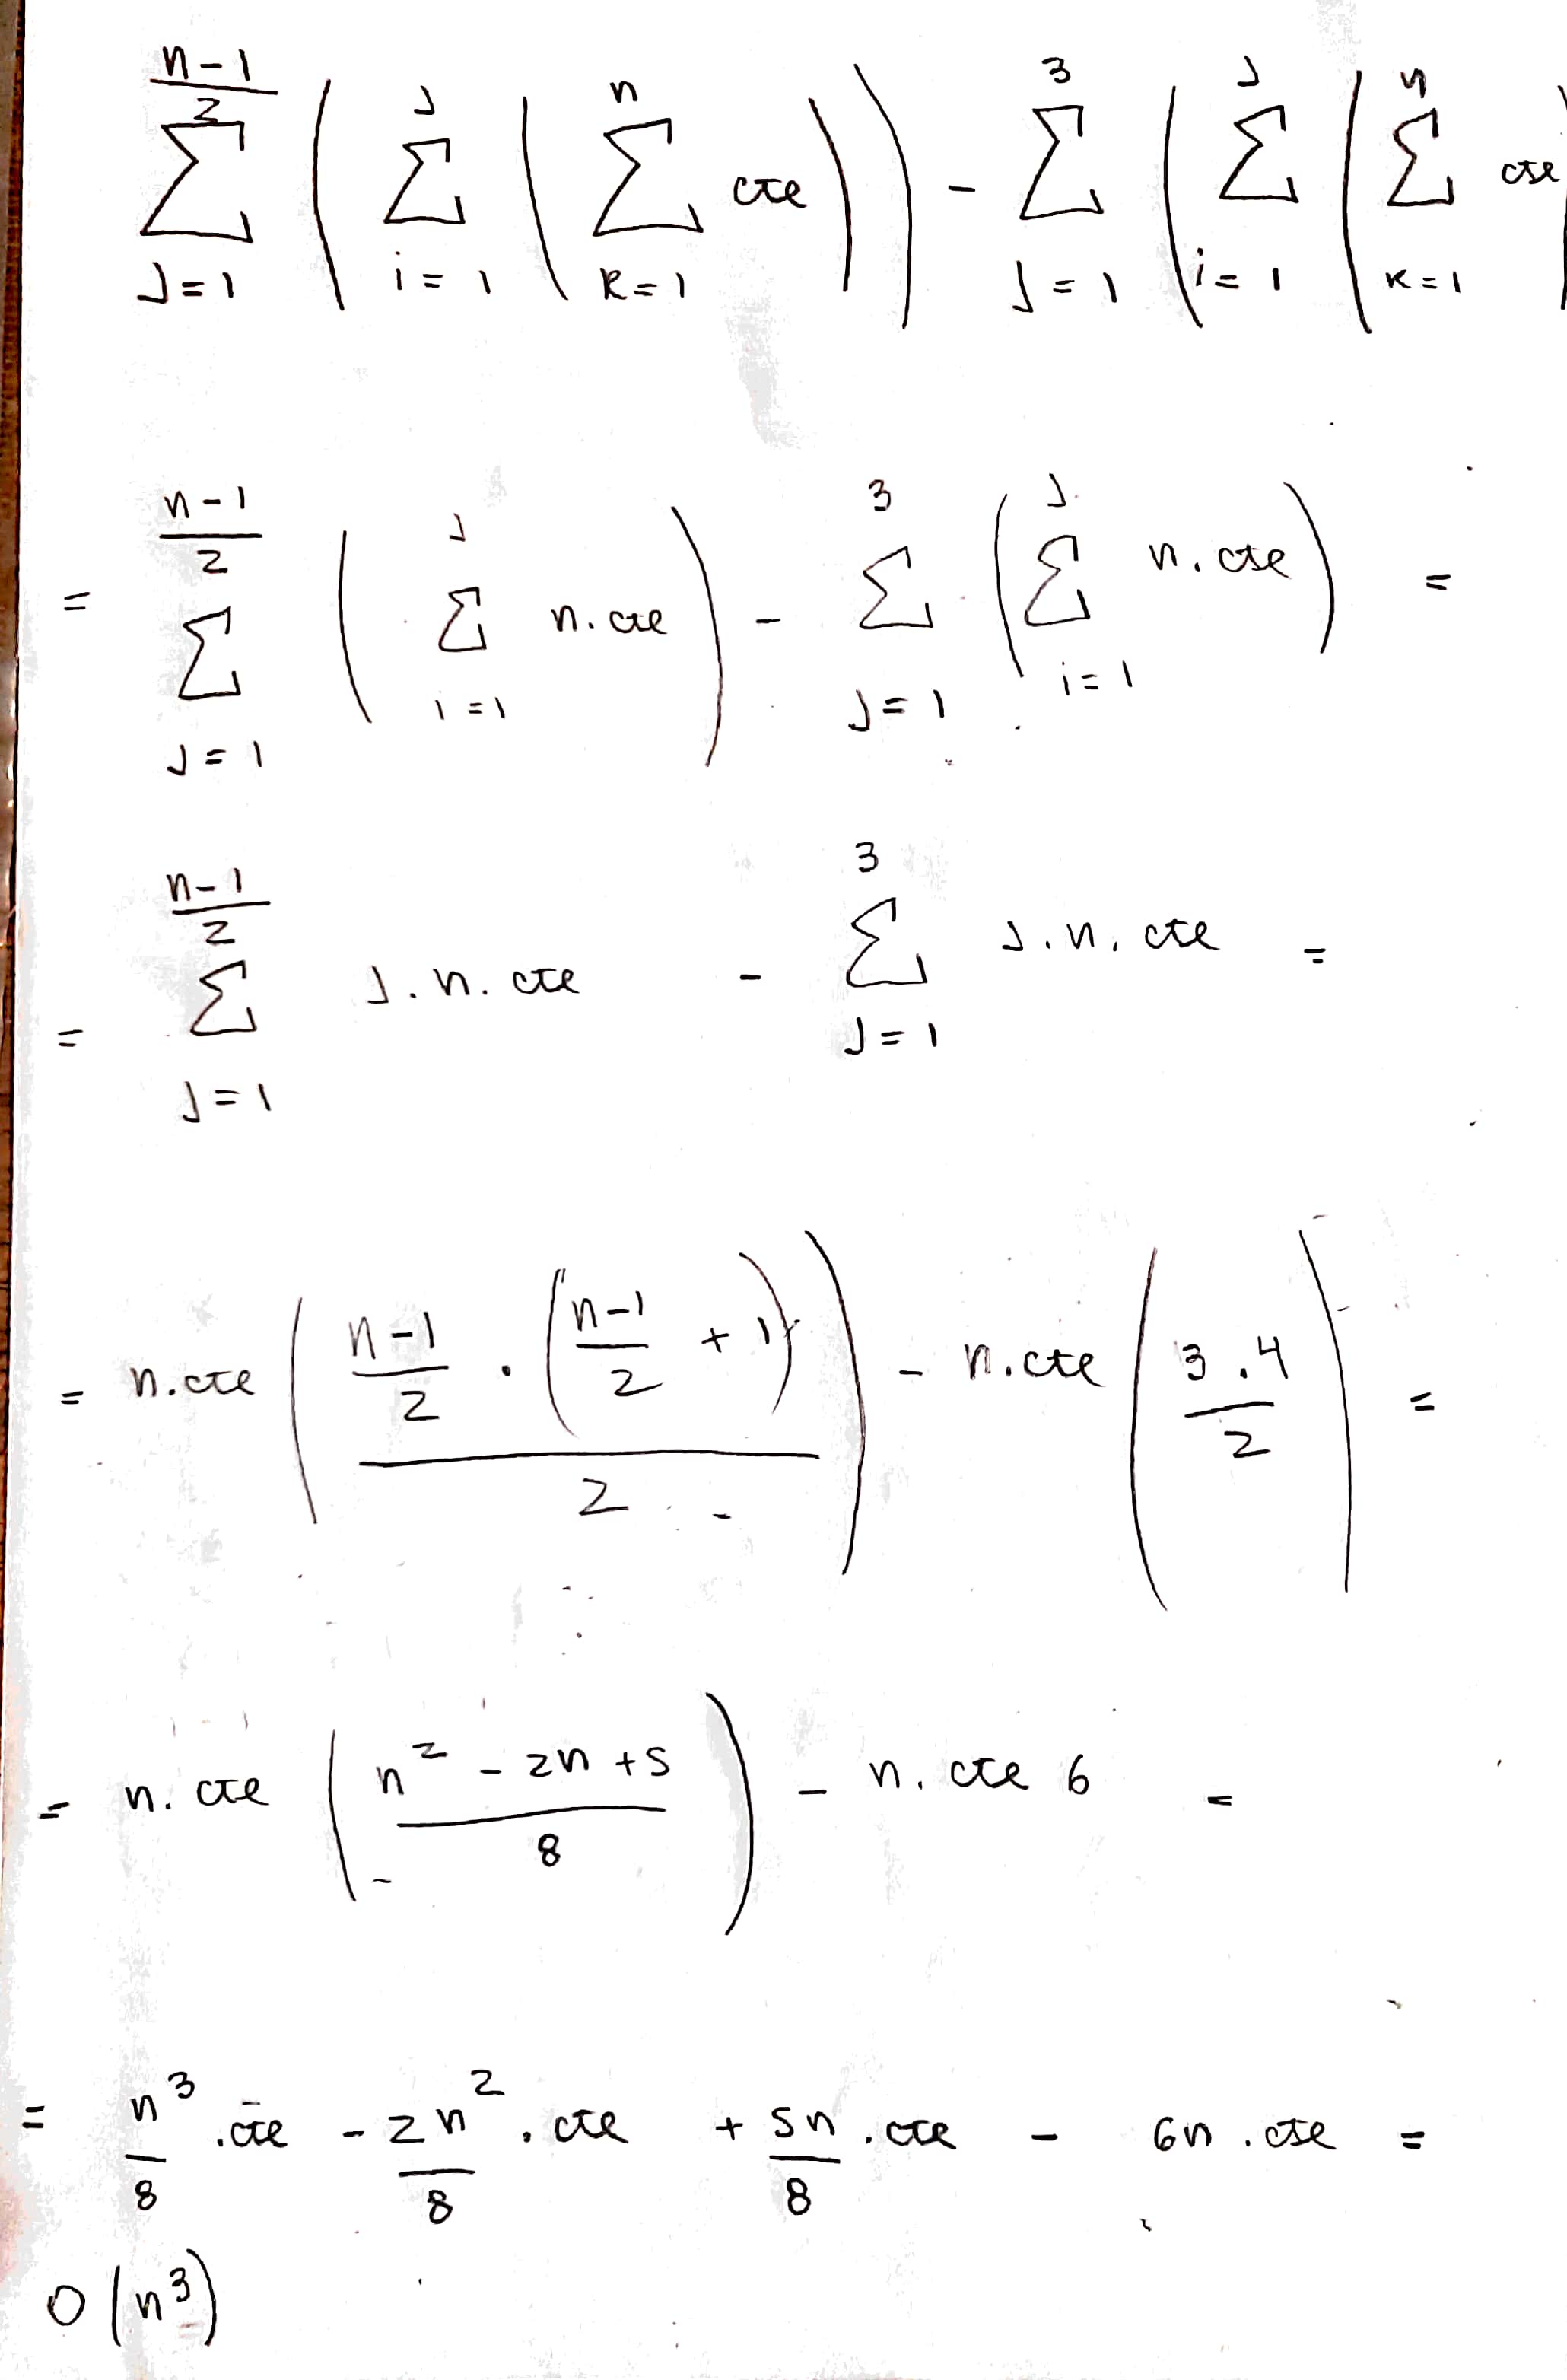 \sum_{J=1}^{\frac{n-1}{2}} \left( \sum_{i=1}^{J} \left( \sum_{k=1}^{n} cte \right) \right) - \sum_{J=1}^{3} \left( \sum_{i=1}^{J} \left( \sum_{k=1}^{n} cte
= \sum_{J=1}^{\frac{n-1}{2}} \left( \sum_{i=1}^{J} n.cte \right) - \sum_{J=1}^{3} \left( \sum_{i=1}^{J} n.cte \right) =
= \sum_{J=1}^{\frac{n-1}{2}} J.n.cte - \sum_{J=1}^{3} J.n.cte =
= n.cte \left( \frac{\frac{n-1}{2} . \left( \frac{n-1}{2} + 1 \right)}{2} \right) - n.cte \left( \frac{3.4}{2} \right) =
= n.cte \left( \frac{n^2 - 2n + 5}{8} \right) - n.cte 6 =
= \frac{n^3}{8} .cte - \frac{2n^2}{8} .cte + \frac{5n}{8} .cte - 6n.cte =
O(n^3)